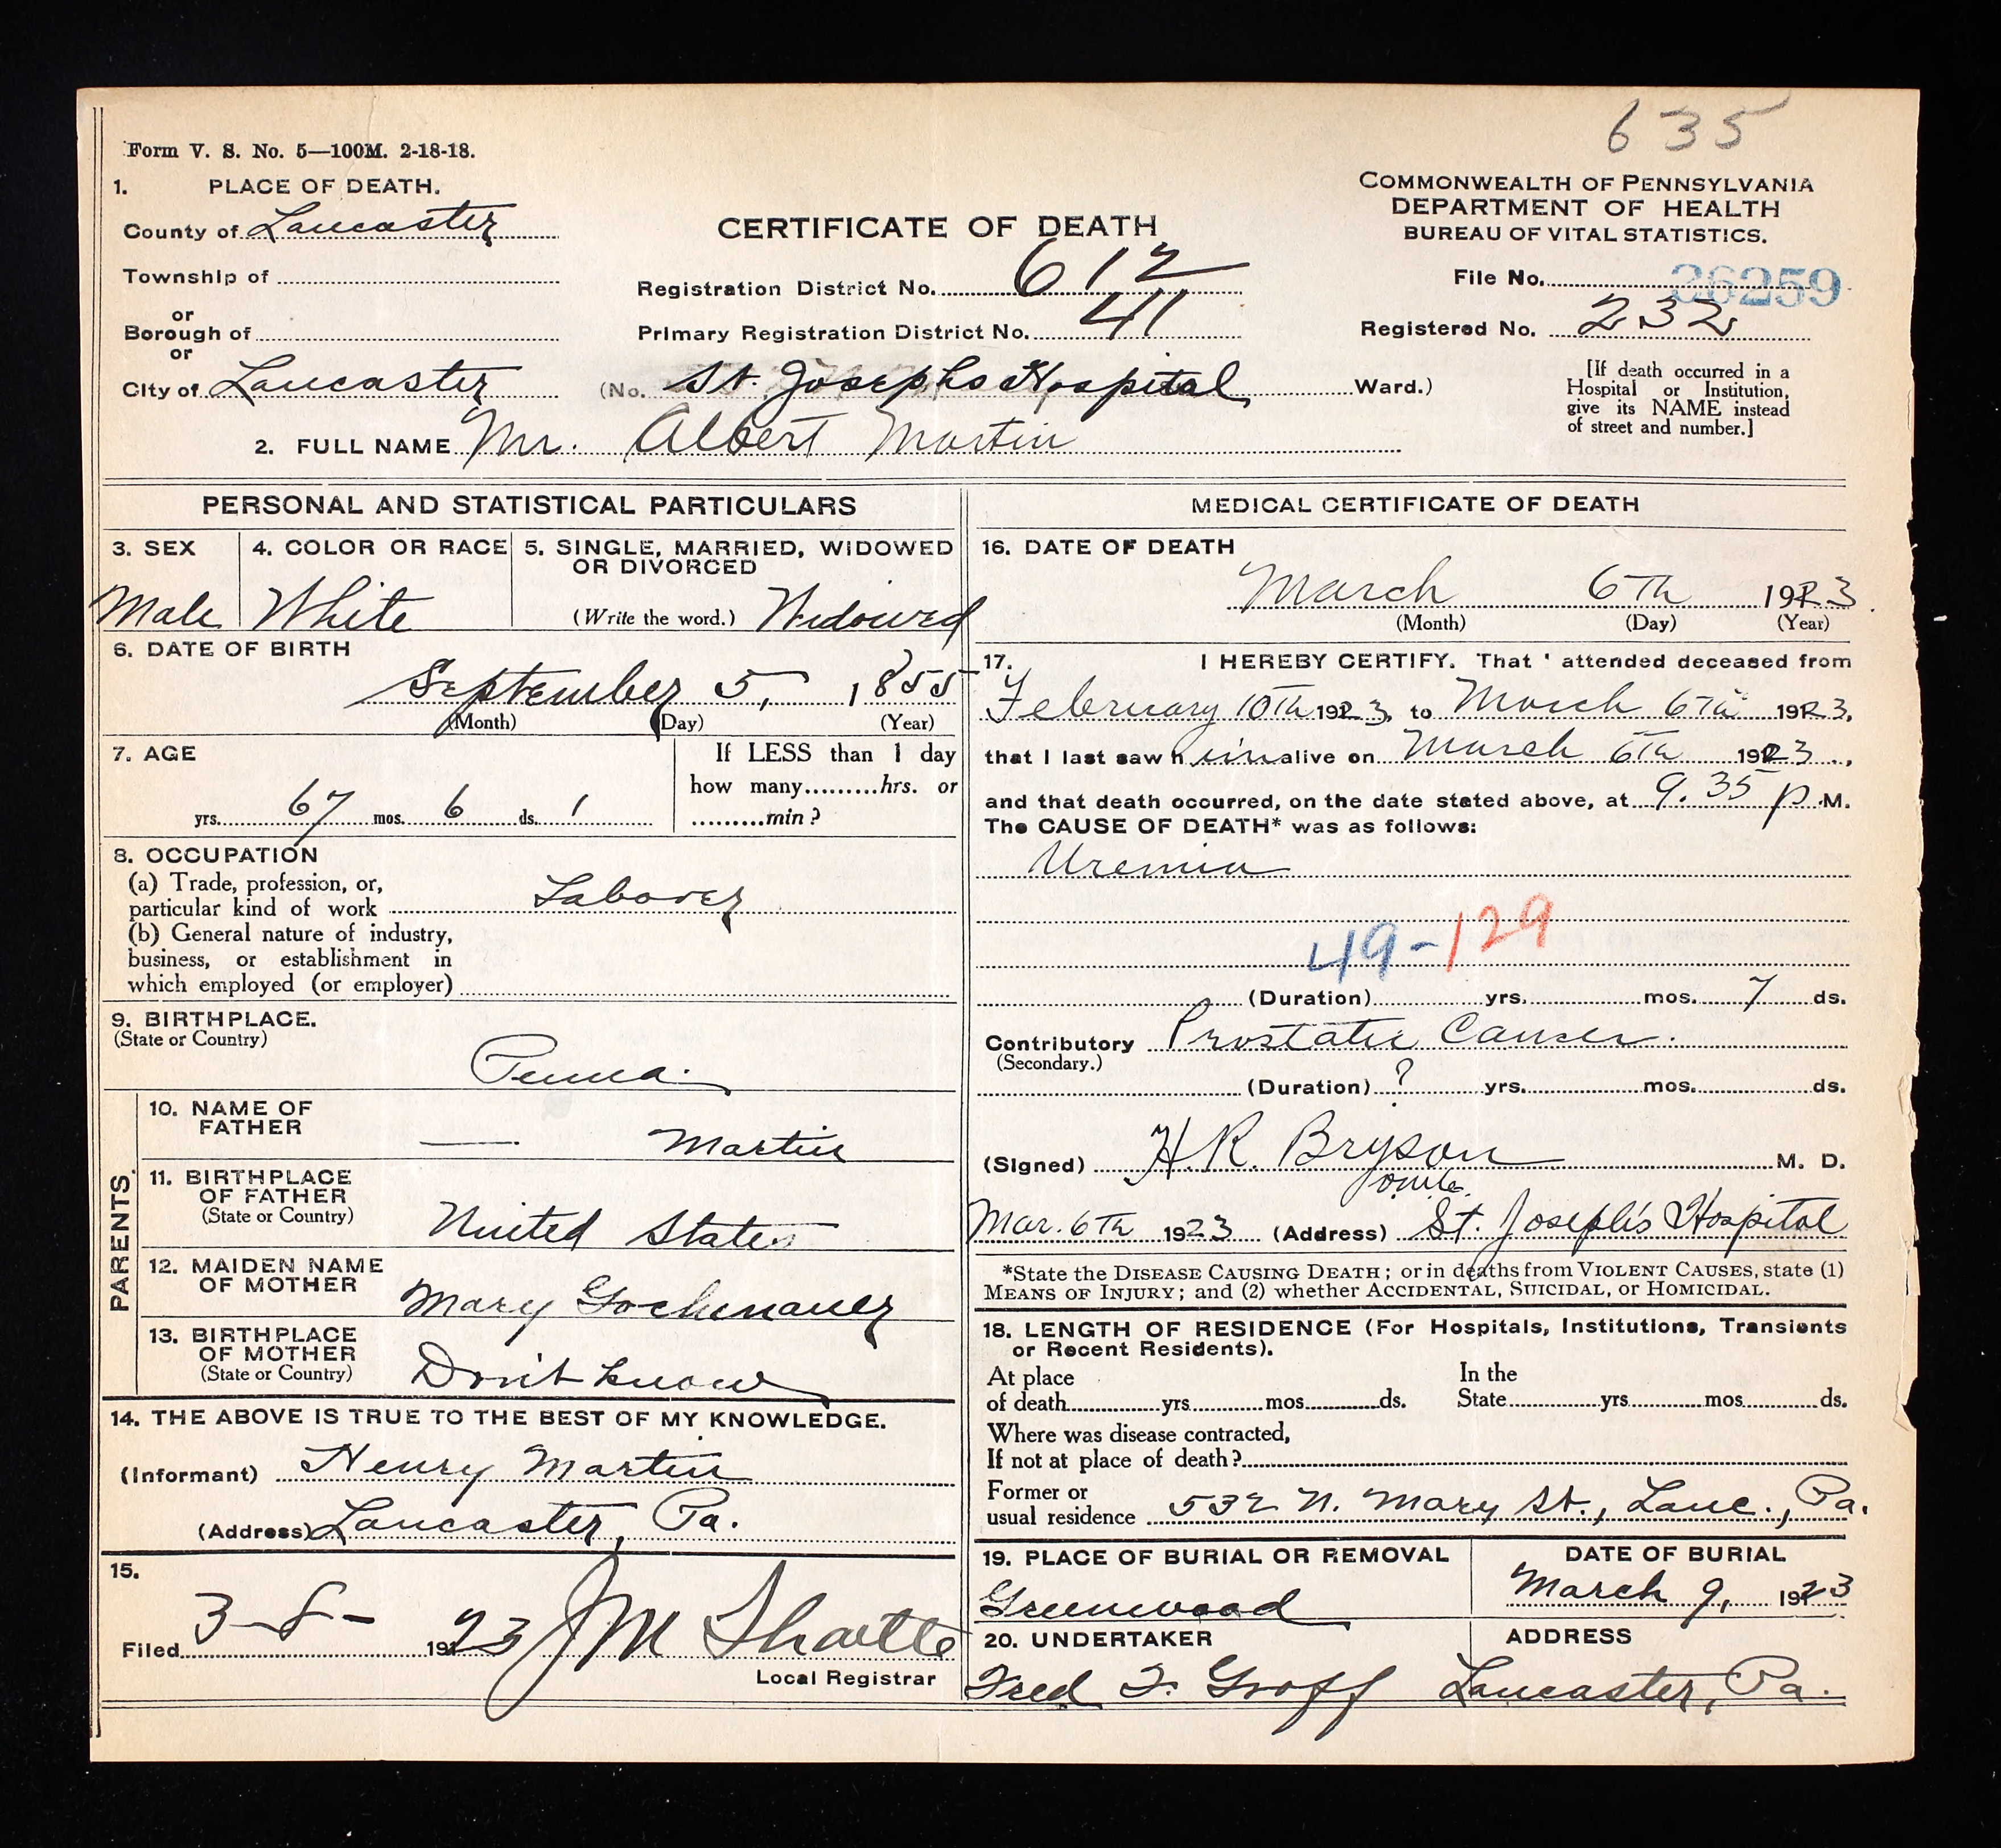 635
Form V. S. No. 5—100M. 2-18-18.
1. PLACE OF DEATH.
County of Lancaster
Township of
or
Borough of
or
City of Lancaster
CERTIFICATE OF DEATH
Registration District No. 612
Primary Registration District No. 41
(No. St. Josephs Hospital Ward.)
COMMONWEALTH OF PENNSYLVANIA
DEPARTMENT OF HEALTH
BUREAU OF VITAL STATISTICS.
File No. 26259
Registered No. 232
[If death occurred in a
Hospital or Institution,
give its NAME instead
of street and number.]
2. FULL NAME Mr. Albert Martin
PERSONAL AND STATISTICAL PARTICULARS
3. SEX
Male
4. COLOR OR RACE
White
5. SINGLE, MARRIED, WIDOWED
OR DIVORCED
(Write the word.) Widowed
6. DATE OF BIRTH
September 5, 1855
(Month) (Day) (Year)
7. AGE
yrs. 67 mos. 6 ds. 1
If LESS than 1 day
how many.........hrs. or
.........min?
8. OCCUPATION
(a) Trade, profession, or,
particular kind of work Laborer
(b) General nature of industry,
business, or establishment in
which employed (or employer)
9. BIRTHPLACE.
(State or Country)
Penna.
PARENTS.
10. NAME OF
FATHER
— Martin
11. BIRTHPLACE
OF FATHER
(State or Country)
United States
12. MAIDEN NAME
OF MOTHER
Mary Gochenauer
13. BIRTHPLACE
OF MOTHER
(State or Country)
Don't know
14. THE ABOVE IS TRUE TO THE BEST OF MY KNOWLEDGE.
(Informant) Henry Martin
(Address) Lancaster, Pa.
15.
Filed 3-8- 1923 J M
Local Registrar
MEDICAL CERTIFICATE OF DEATH
16. DATE OF DEATH
March 6th 1923.
(Month) (Day) (Year)
17. I HEREBY CERTIFY. That ' attended deceased from
February 10th 1923, to March 6th 1923,
that I last saw him alive on March 6th 1923.,
and that death occurred, on the date stated above, at 9.35 p.M.
The CAUSE OF DEATH* was as follows:
Uremia
49-129
(Duration) yrs. mos. 7 ds.
Contributory Prostatic Cancer.
(Secondary.)
(Duration) ? yrs. mos. ds.
(Signed) H.R. Bryson M. D.
Mar. 6th 1923 (Address) St. Joseph's Hospital
*State the DISEASE CAUSING DEATH; or in deaths from VIOLENT CAUSES, state (1)
MEANS OF INJURY; and (2) whether ACCIDENTAL, SUICIDAL, or HOMICIDAL.
18. LENGTH OF RESIDENCE (For Hospitals, Institutions, Transients
or Recent Residents).
At place
of death yrs mos ds.
In the
State yrs mos ds.
Where was disease contracted,
If not at place of death?
Former or
usual residence 532 N. Mary St., Lanc., Pa.
19. PLACE OF BURIAL OR REMOVAL
Greenwood
DATE OF BURIAL
March 9, 1923
20. UNDERTAKER
Fred F. Groff
ADDRESS
Lancaster, Pa.